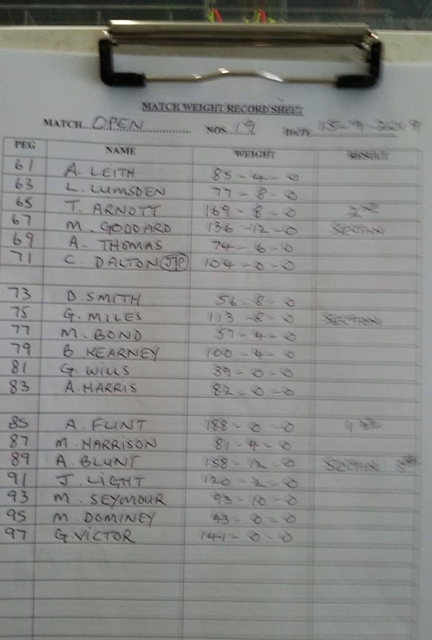 MATCH WEIGHT RECORD SHEET
MATCH OPEN NOS 19 DATE
PEG NAME WEIGHT RESULT
61 A. LEITH 85-4-0
63 L. LUMSDEN 77-8-0
65 T. ARNOTT 169-8-0 2nd
67 M. GODDARD 136-12-0 SECTION
69 A. THOMAS 74-6-0
71 C. DALTON JP 104-0-0
73 D. SMITH 56-8-0
75 G. MILES 113-8-0 SECTION
77 M. BOND 57-4-0
79 B KEARNEY 100-4-0
81 G. WILLS 39-0-0
83 A. HARRIS 82-0-0
85 A. FLINT 188-0-0 1st
87 M. HARRISON 81-4-0
89 A. BLUNT 158-12-0 SECTION 3rd
91 J. LIGHT 120-2-0
93 M. SEYMOUR 93-10-0
95 M. DOMINEY 43-0-0
97 G. VICTOR 141-0-0